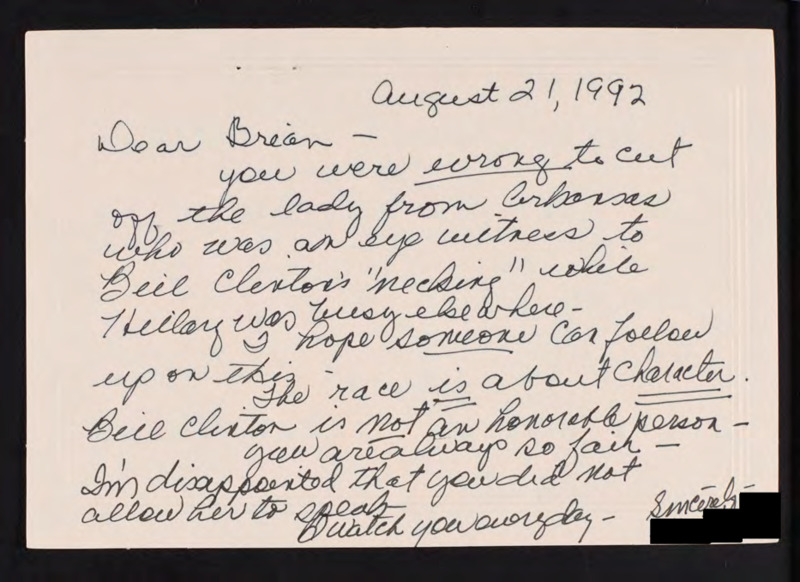 August 21, 1992
Dear Brian –
you were wrong to cut
off the lady from Arkansas
who was an eye witness to
Bill Clinton's "necking" while
Hillary was busy elsewhere –
I hope someone can follow
up on this.
The race is about character.
Bill Clinton is not an honorable person –
you are always so fair –
I'm disappointed that you did not
allow her to speak
I watch you everyday –
Sincerely